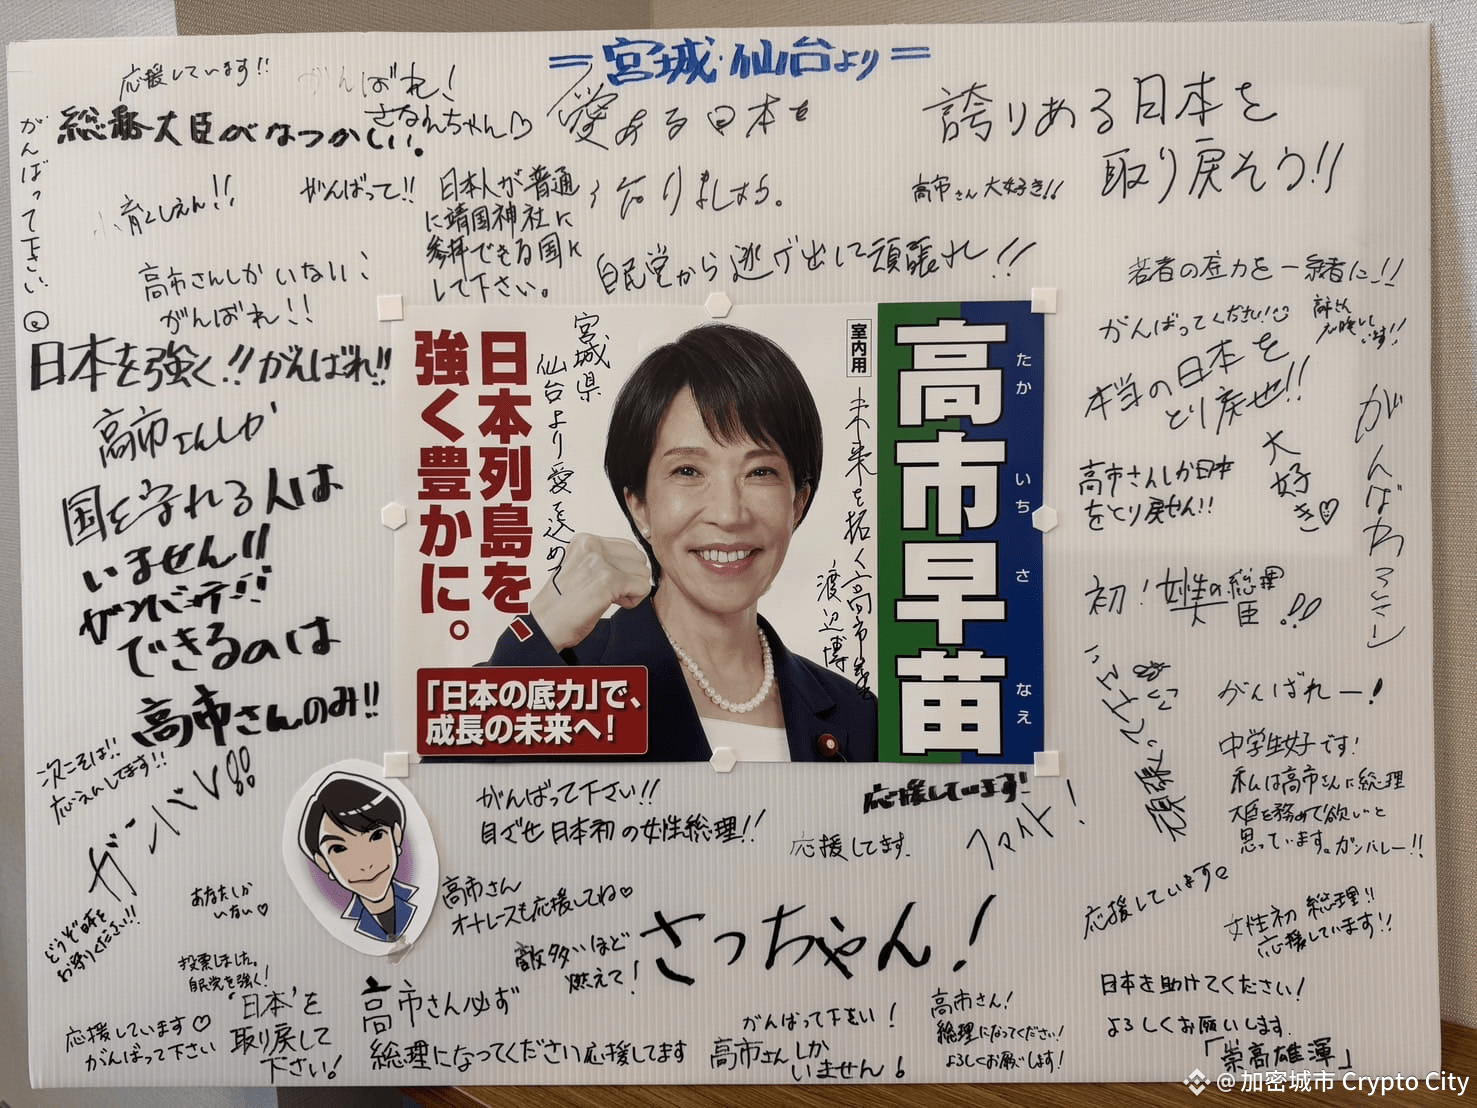 =宮城・仙台より=
応援しています!!
がんばれ!
さなえちゃん♡
総務大臣がなつかしい.
がんばって下さい.
愛ある日本を
誇りある日本を
取り戻そう!!
高市さん 大好き!!
がんばって!!
日本人が普通
に靖国神社に
参拝できる国に
して下さい。
自民党から逃げ出して頑張れ!!
高市さんしかいない!
がんばれ!!
若者の底力を一緒に!!
がんばってください!
日本を強く!!がんばれ!!
本当の日本を
とり戻せ!!
大好き♡
高市さんしか日本
をとり戻せん!!
高市さんしか
国を守れる人は
いません!!
できるのは
高市さんのみ!!
宮城県
仙台より愛を込めて
日本列島を、
強く豊かに。
室内用
未来を拓く高市早苗
渡辺博
高市早苗
たか いち さ なえ
「日本の底力」で、
成長の未来へ!
初!女性の総理
大臣!!
がんばれー!
中学生女子です!
私は高市さんに総理
大臣を務めて欲しいと
思っています。ガンバレー!!
次こそは!!
応えんしてます!!
ガンバレ!!
どうぞ日本を
お守りください!!
あなたしか
いない♡
投票しました。
自民党を強く!
がんばって下さい!!
目ざせ日本初の女性総理!!
応援しています!
応援してます.
ファイト!
高市さん
オトレースも応援してね♡
敵多いほど
燃えて!
さっちゃん!
応援しています
女性初 総理!!
応援しています!!
応援しています♡
がんばって下さい
'日本'を
取り戻して
下さい!
高市さん必ず
総理になってください応援してます
がんばって下さい!
高市さんしか
いません!
高市さん!
総理になってください!
よろしくお願いします!
日本を助けてください!
よろしくお願いします.
「崇高雄渾」
@加密城市 Crypto City